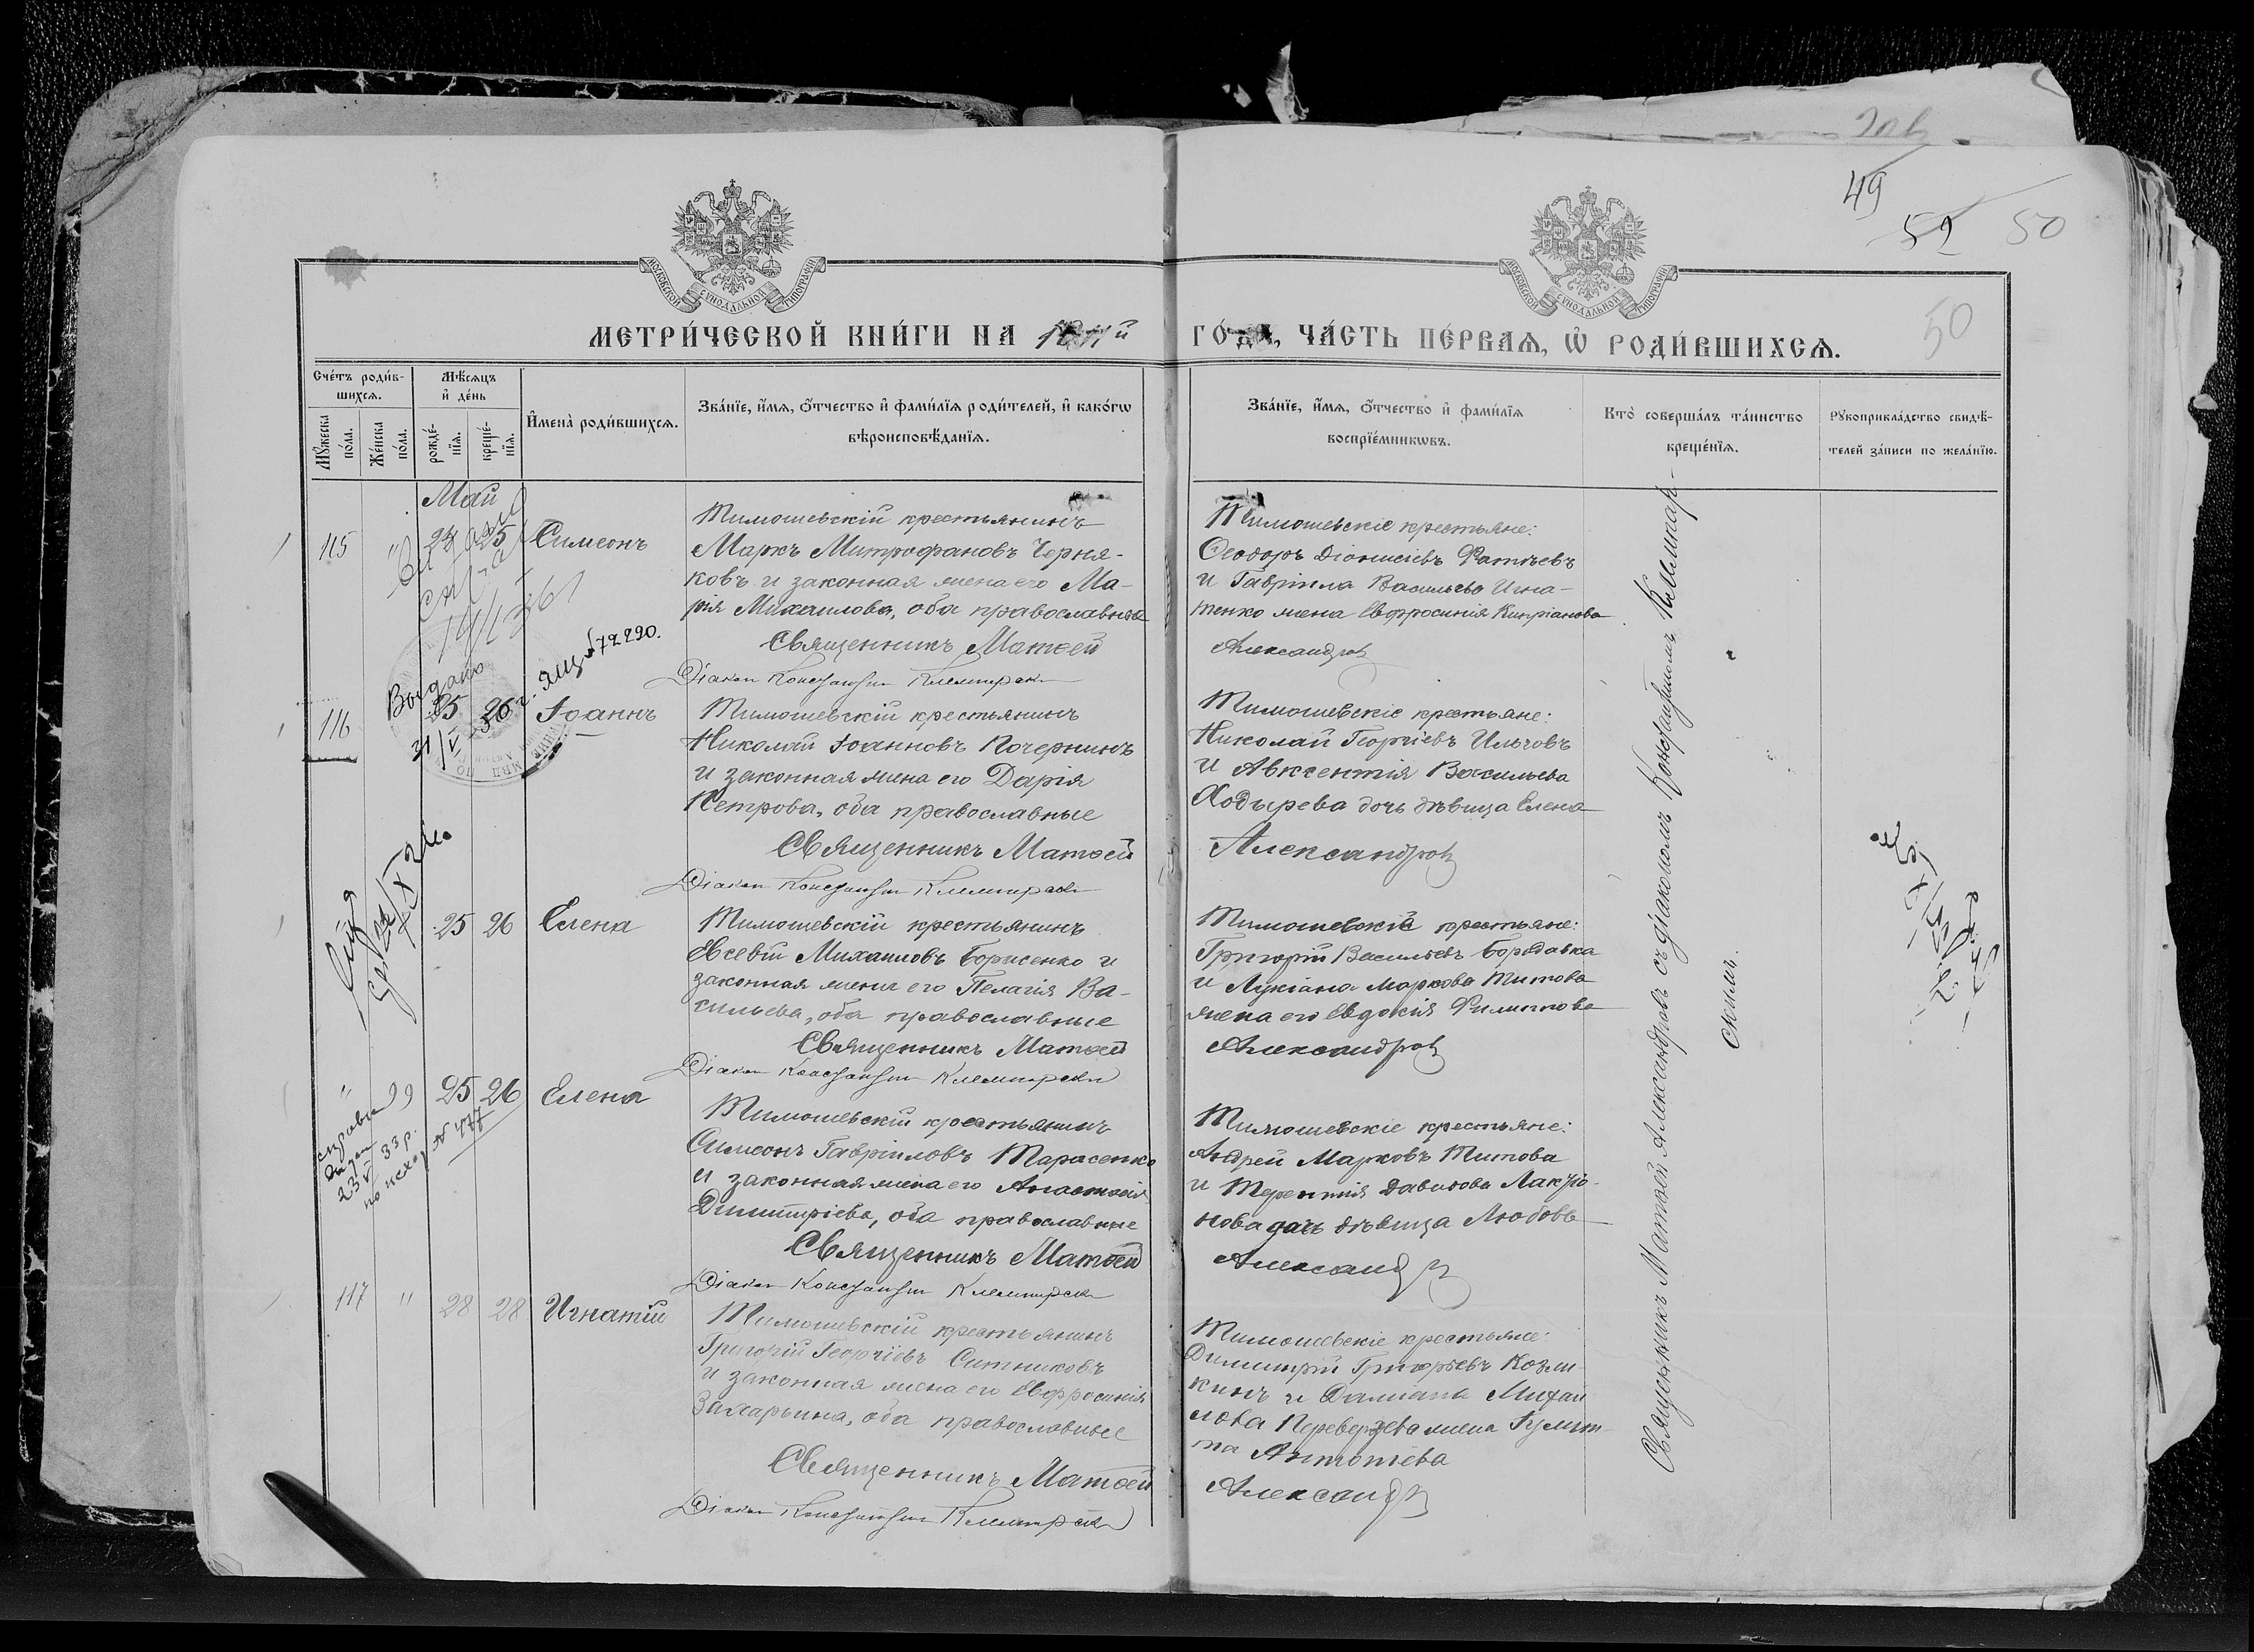 49
59
50
50
МОСКОВСКОЙ СѴНОДАЛЬНОЙ ТИПОГРАФІИ
МОСКОВСКОЙ СѴНОДАЛЬНОЙ ТИПОГРАФІИ
МЕТРИ́ЧЕСКОЙ КНИ́ГИ НА
ЧА́СТЬ ПЕ́РВАЯ, Ѡ҆ РОДИ́ВШИХСЯ.
Сче́тъ роди́в-
шихся.
Мѣ́сяцъ
и҆ де́нь
Мꙋ́жеска
по́ла.
Же́нска
по́ла.
рожде́-
нїя.
креще́-
нїя.
И҆мена̀ роди́вшихся.
Зва́нїе, и҆́мя, ѻ҆́тчество и҆ фами́лїя роди́телей, и҆ како́гѡ
вѣроисповѣ́данїя.
Зва́нїе, и҆́мя, ѻ҆́тчество и҆ фами́лїя
воспрїе́мникѡвъ.
Кто̀ соверша́лъ та́инство
креще́нїя.
Рꙋкоприкла́дство свидѣ́-
телей за́писи по жела́нїю.
Май
115 " 24 25 Симеонъ
Тимошевскій крестьянинъ
Маркъ Митрофановъ Черня-
ковъ и законная жена его Ма-
рія Михаилова, оба православные
Священникъ Матѳей
Діакон Константин
Тимошевскіе крестьяне:
Ѳеодоръ Діонисіевъ
и Гавріила Васильева Игна-
тенко жена Евфросинія Кипріанова
Александров
Выдано
72290.
116 25 26 Іоаннъ
Тимошевскій крестьянинъ
Николай Іоанновъ Почернинъ
и законная жена его Дарія
Петрова, оба православные
Священникъ Матѳей
Діакон Константин
Тимошевскіе крестьяне:
Николай Георгіевъ Ильчовъ
и Авксентія Васильева
Ходырева дочь дѣвица Елена
Александров
" 25 26 Елена
Тимошевскій крестьянинъ
Евсевій Михаиловъ Борисенко и
законная жена его Пелагія Ва-
сильева, оба православные
Священникъ Матѳей
Діакон Константин
Тимошевскіе крестьяне:
Григорій Васильевъ Бородавка
и Лукіана Маркова Титова
жена его Евдокія Филиппова
Александров
" 99 25 26 Елена
справка
23 V 33 г.
по исход № 477
Тимошевскій крестьянинъ
Симеонъ Гавріиловъ Тарасенко
и законная жена его Анастасія
Димитріева, оба православные
Священникъ Матѳей
Діакон Константин
Тимошевскіе крестьяне:
Андрей Марковъ Титова
и Терентія Давидова
нова дочь дѣвица Любовь
Александр
117 " 28 28 Игнатій
Тимошевскій крестьянинъ
Григорій Георгіевъ Ситниковъ
и законная жена его Евфросинія
Захарьина, оба православные
Священникъ Матѳей
Діакон Константин
Тимошевскіе крестьяне:
Димитрій Григорьевъ Козли-
кинъ и Даміана Михаи-
лова Переверзева жена
Антоніева
Александр
Священникъ Матѳей Александровъ съ діакономъ Константиномъ Клемпар-
скимъ.